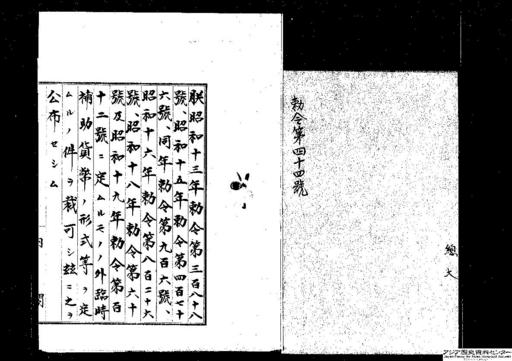 勅令第四十四號
總大
朕昭和十三年勅令第三百八十八
號、昭和十五年勅令第四百七十
六號、同年勅令第九百六號、
昭和十六年勅令第八百二十六
號、昭和十八年勅令第六十
號及昭和十九年勅令第百
十二號ニ定ムルモノノ外臨時
補助貨幣ノ形式等ヲ定
ムルノ件ヲ裁可シ玆ニ之ヲ
公布セシム
内閣
アジア歴史資料センター
Japan Center for Asian Historical Records